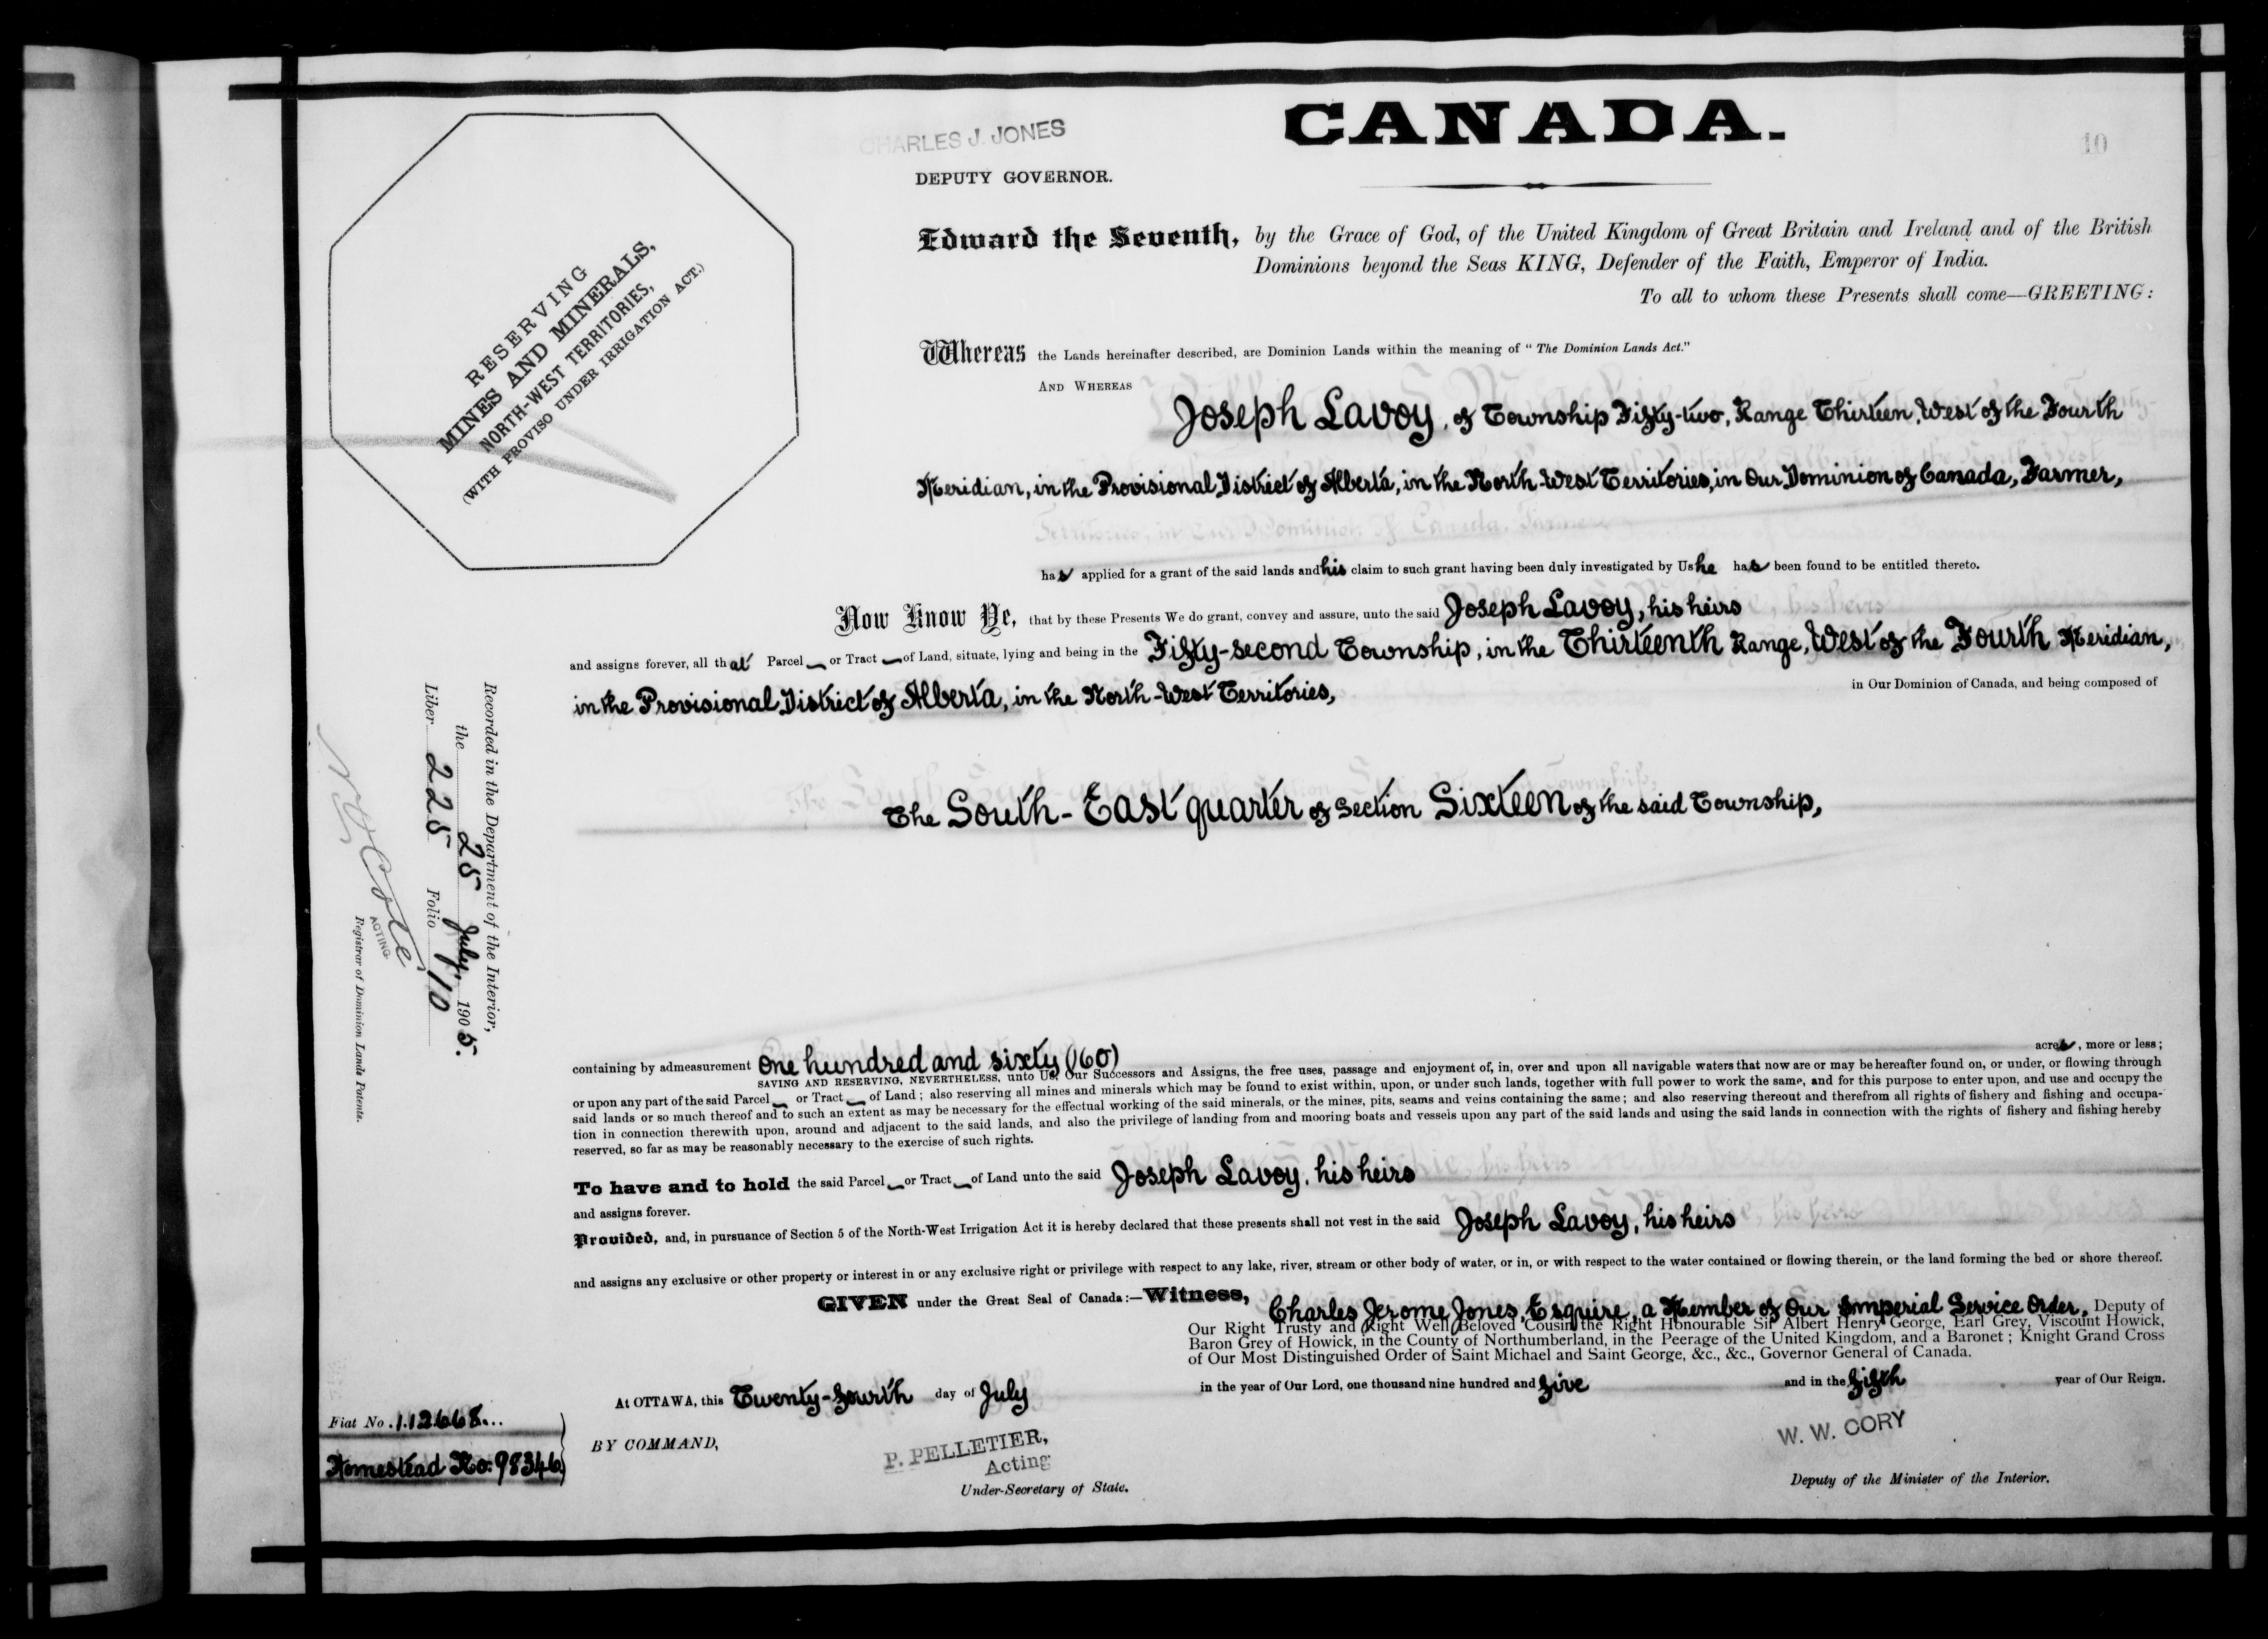 CANADA.
10
CHARLES J. JONES
DEPUTY GOVERNOR.
RESERVING
MINES AND MINERALS,
NORTH-WEST TERRITORIES,
(WITH PROVISO UNDER IRRIGATION ACT.)
Edward the Seventh, by the Grace of God, of the United Kingdom of Great Britain and Ireland and of the British
Dominions beyond the Seas KING, Defender of the Faith, Emperor of India.
To all to whom these Presents shall come—GREETING:
Whereas the Lands hereinafter described, are Dominion Lands within the meaning of "The Dominion Lands Act."
AND WHEREAS
Joseph Lavoy, of Township Fifty-two, Range Thirteen, West of the Fourth
Meridian, in the Provisional District of Alberta, in the North-West Territories, in Our Dominion of Canada, Farmer,
has applied for a grant of the said lands and his claim to such grant having been duly investigated by Us he has been found to be entitled thereto.
Now Know Ye, that by these Presents We do grant, convey and assure, unto the said Joseph Lavoy, his heirs
and assigns forever, all that Parcel or Tract of Land, situate, lying and being in the Fifty-second Township, in the Thirteenth Range, West of the Fourth Meridian,
in the Provisional District of Alberta, in the North-West Territories, in Our Dominion of Canada, and being composed of
The South-East quarter of Section Sixteen of the said Township,
Recorded in the Department of the Interior,
the 25 July 1905.
Liber 225 Folio 10
ACTING
Registrar of Dominion Lands Patents.
containing by admeasurement One hundred and sixty (160) acres, more or less;
SAVING AND RESERVING, NEVERTHELESS, unto Us, Our Successors and Assigns, the free uses, passage and enjoyment of, in, over and upon all navigable waters that now are or may be hereafter found on, or under, or flowing through
or upon any part of the said Parcel or Tract of Land; also reserving all mines and minerals which may be found to exist within, upon, or under such lands, together with full power to work the same, and for this purpose to enter upon, and use and occupy the
said lands or so much thereof and to such an extent as may be necessary for the effectual working of the said minerals, or the mines, pits, seams and veins containing the same; and also reserving thereout and therefrom all rights of fishery and fishing and occupa-
tion in connection therewith upon, around and adjacent to the said lands, and also the privilege of landing from and mooring boats and vessels upon any part of the said lands and using the said lands in connection with the rights of fishery and fishing hereby
reserved, so far as may be reasonably necessary to the exercise of such rights.
To have and to hold the said Parcel or Tract of Land unto the said Joseph Lavoy, his heirs
and assigns forever.
Provided, and, in pursuance of Section 5 of the North-West Irrigation Act it is hereby declared that these presents shall not vest in the said Joseph Lavoy, his heirs
and assigns any exclusive or other property or interest in or any exclusive right or privilege with respect to any lake, river, stream or other body of water, or in, or with respect to the water contained or flowing therein, or the land forming the bed or shore thereof.
GIVEN under the Great Seal of Canada:—Witness, Charles Jerome Jones, Esquire, a Member of Our Imperial Service Order, Deputy of
Our Right Trusty and Right Well Beloved Cousin the Right Honourable Sir Albert Henry George, Earl Grey, Viscount Howick,
Baron Grey of Howick, in the County of Northumberland, in the Peerage of the United Kingdom, and a Baronet; Knight Grand Cross
of Our Most Distinguished Order of Saint Michael and Saint George, &c., &c., Governor General of Canada.
At OTTAWA, this Twenty-fourth day of July in the year of Our Lord, one thousand nine hundred and five and in the fifth year of Our Reign.
Fiat No. 112668...
Homestead No: 98346
BY COMMAND,
P. PELLETIER,
Acting
Under-Secretary of State.
W. W. CORY
Deputy of the Minister of the Interior.